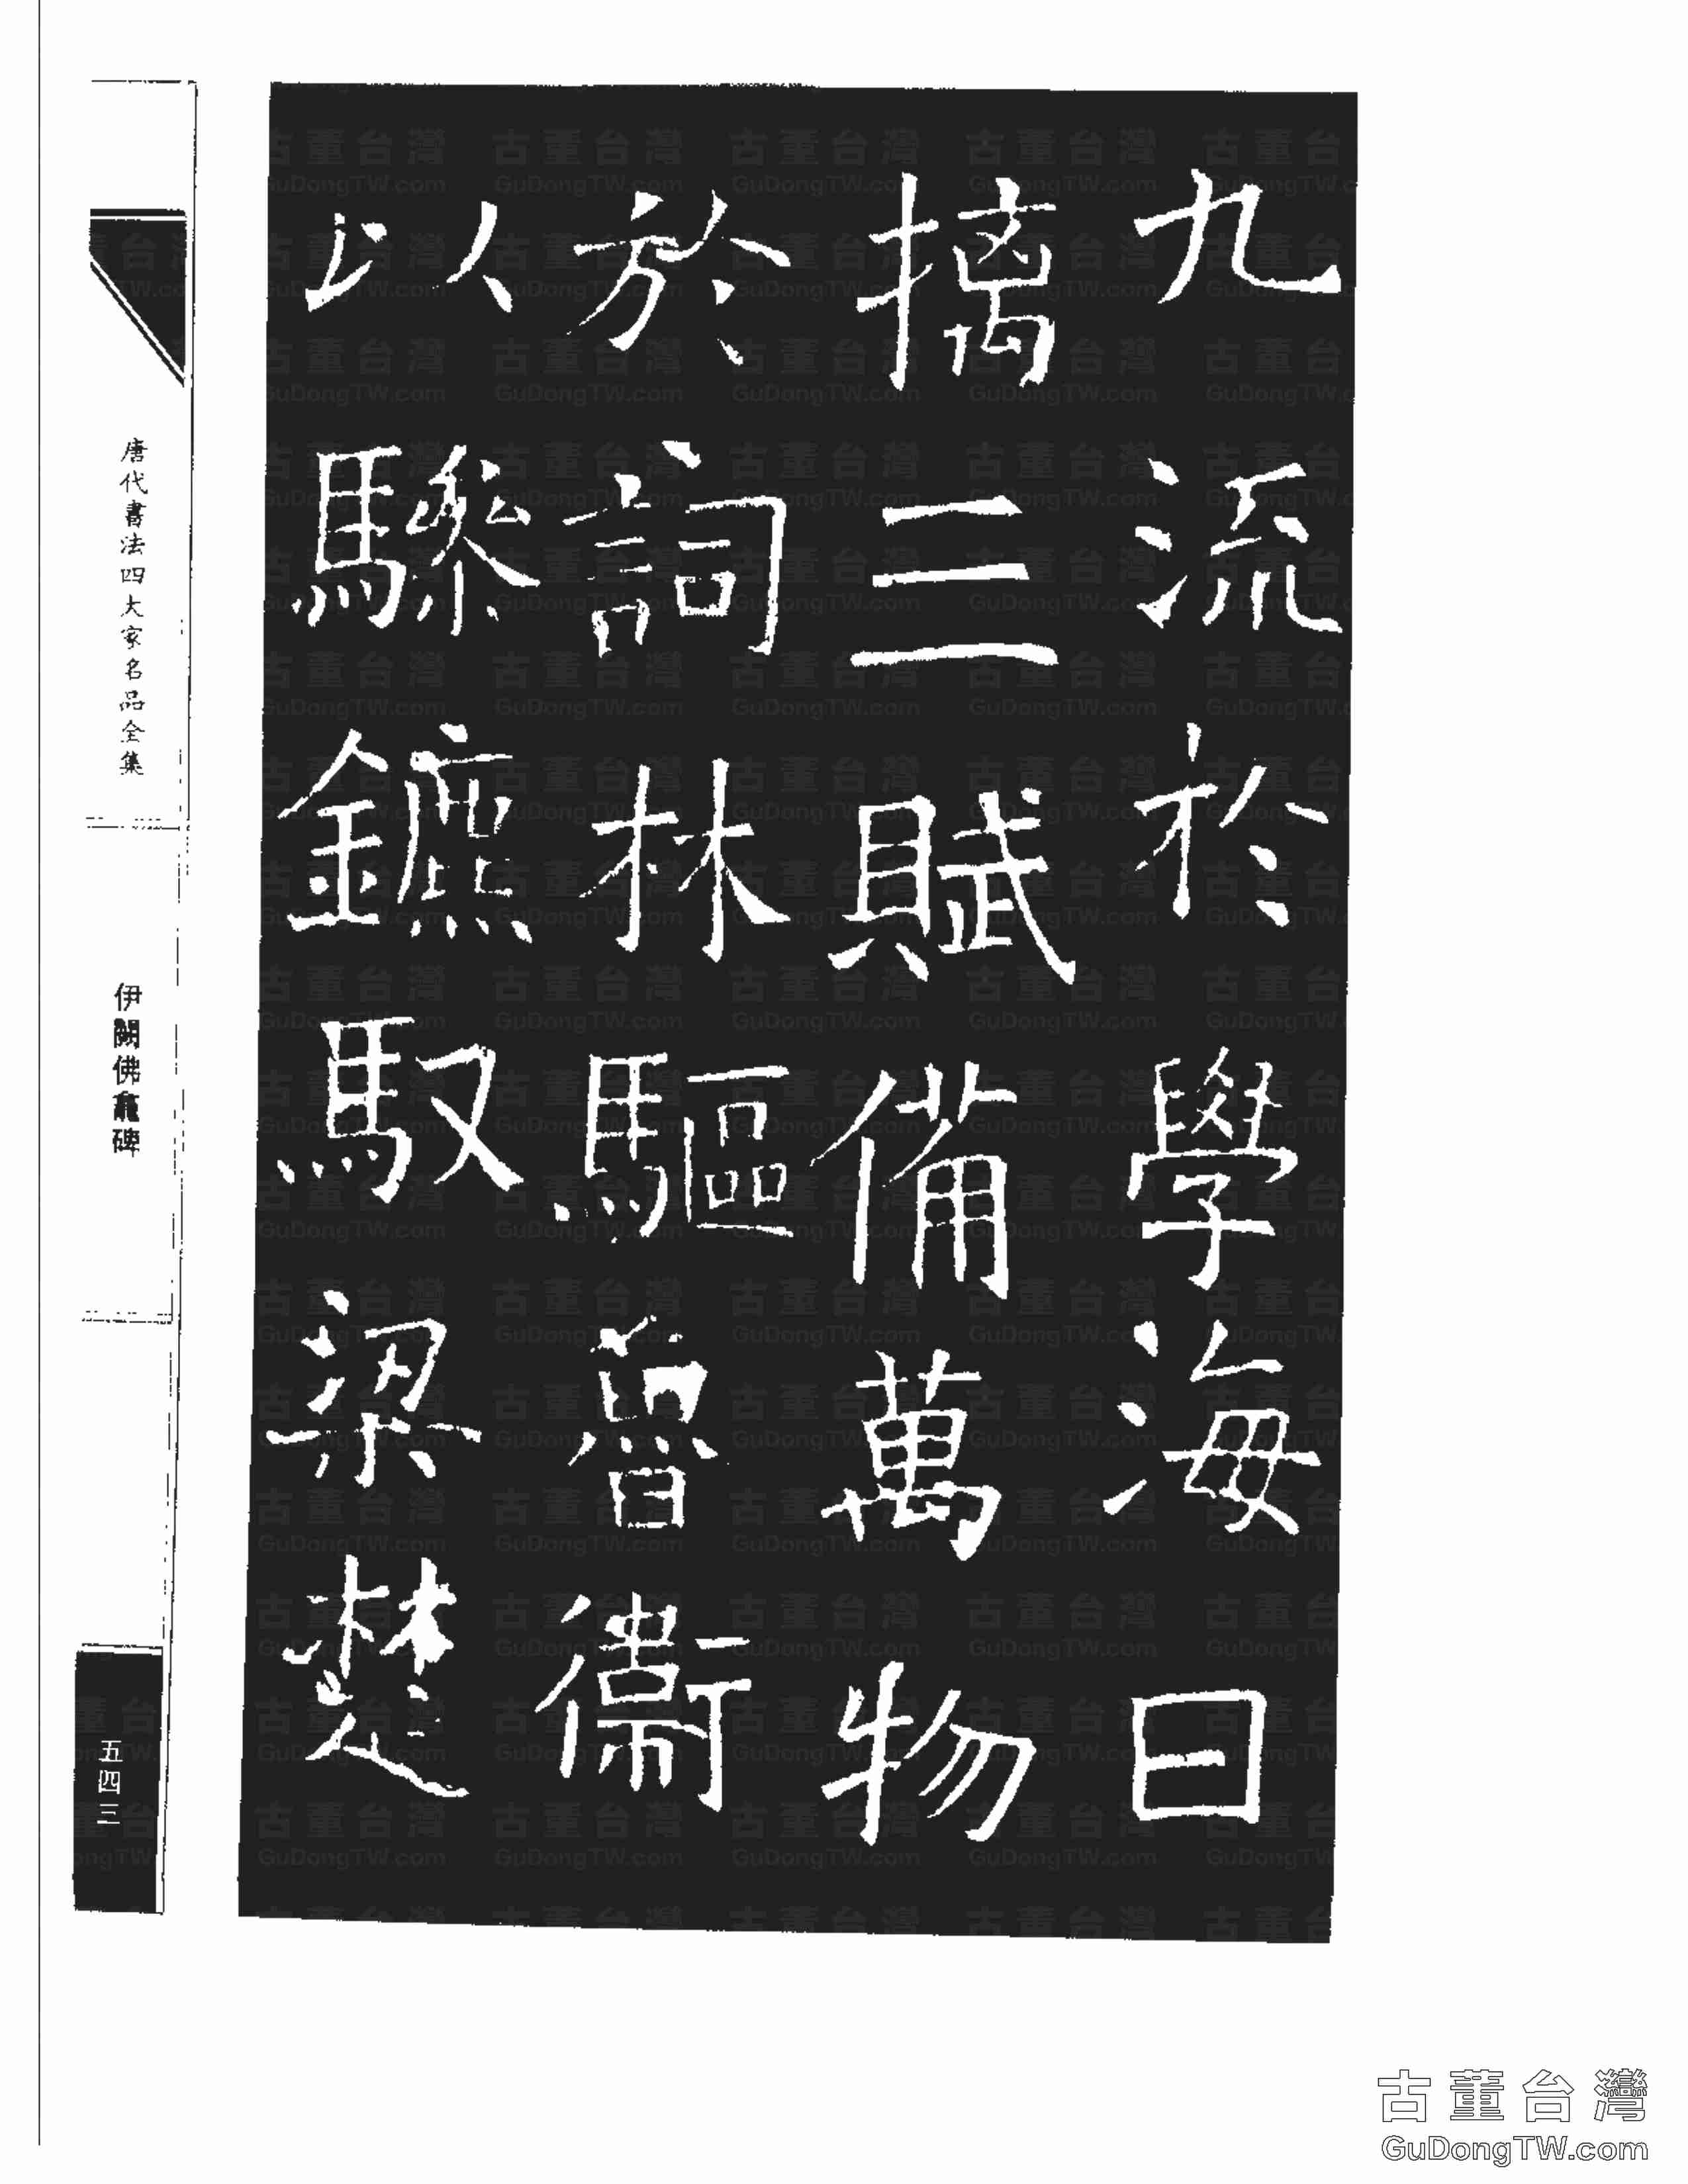 九流於學海曰
摛三賦備萬物
於詞林驅魯衞
以驂鑣馭梁楚
唐代書法四大家名品全集
伊闕佛龕碑
五四三
古董台灣
GuDongTW.com